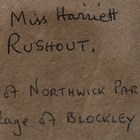 Miss Harriett
RUSHOUT.
of NORTHWICK PAR
lage of BLOCKLEY